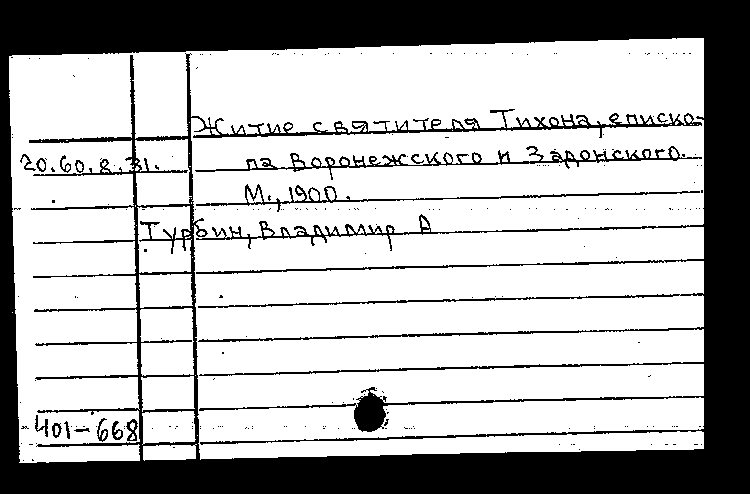 Житие святителя Тихона, еписко-
20.60.8.31. па Воронежского и Задонского.
М., 1900.
Турбин, Владимир А
401-668